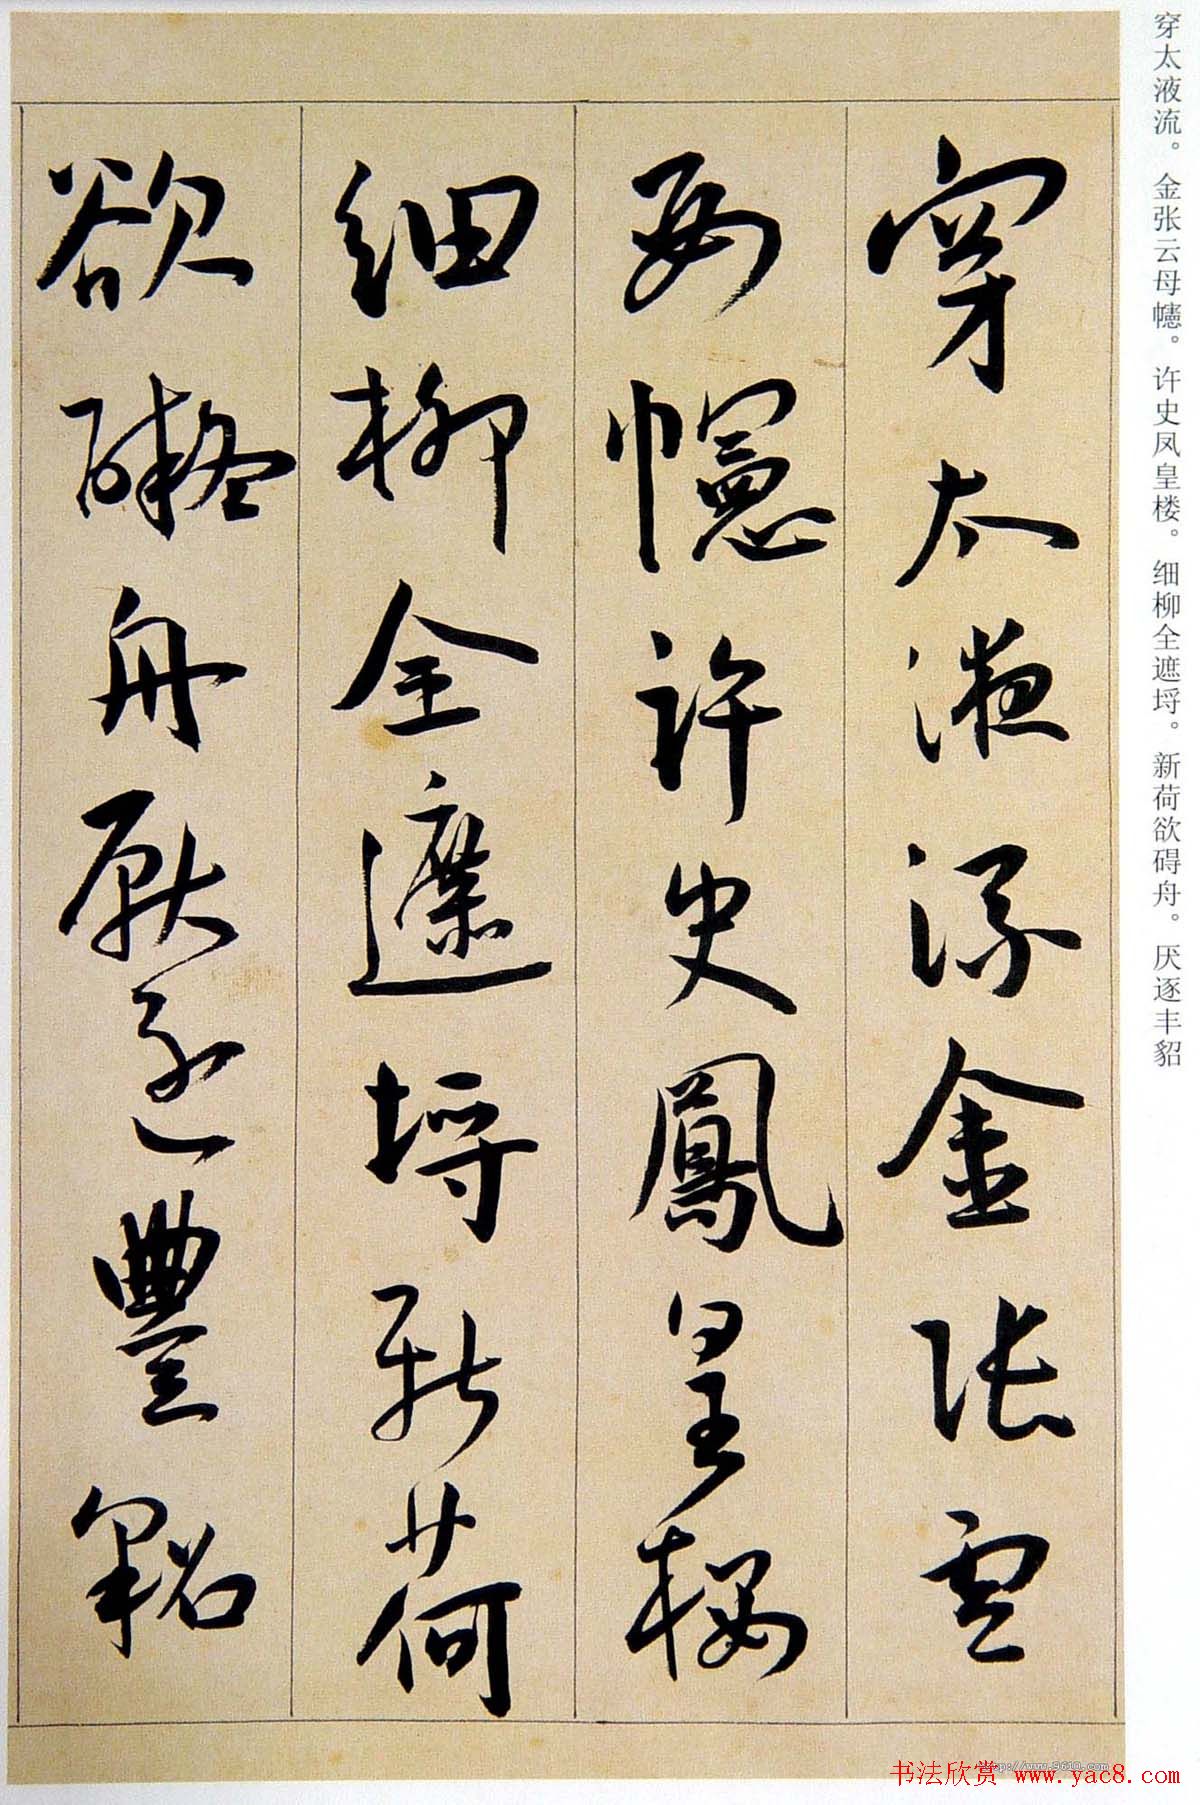 穿太液流。金张云母幰。许史凤皇楼。细柳全遮埒。新荷欲碍舟。厌逐丰貂
穿太液流金張雲
母幰許史鳳皇樓
細柳全遮埒新荷
欲礙舟厭逐豐貂
http://www.9610.com
书法欣赏 www.yac8.com